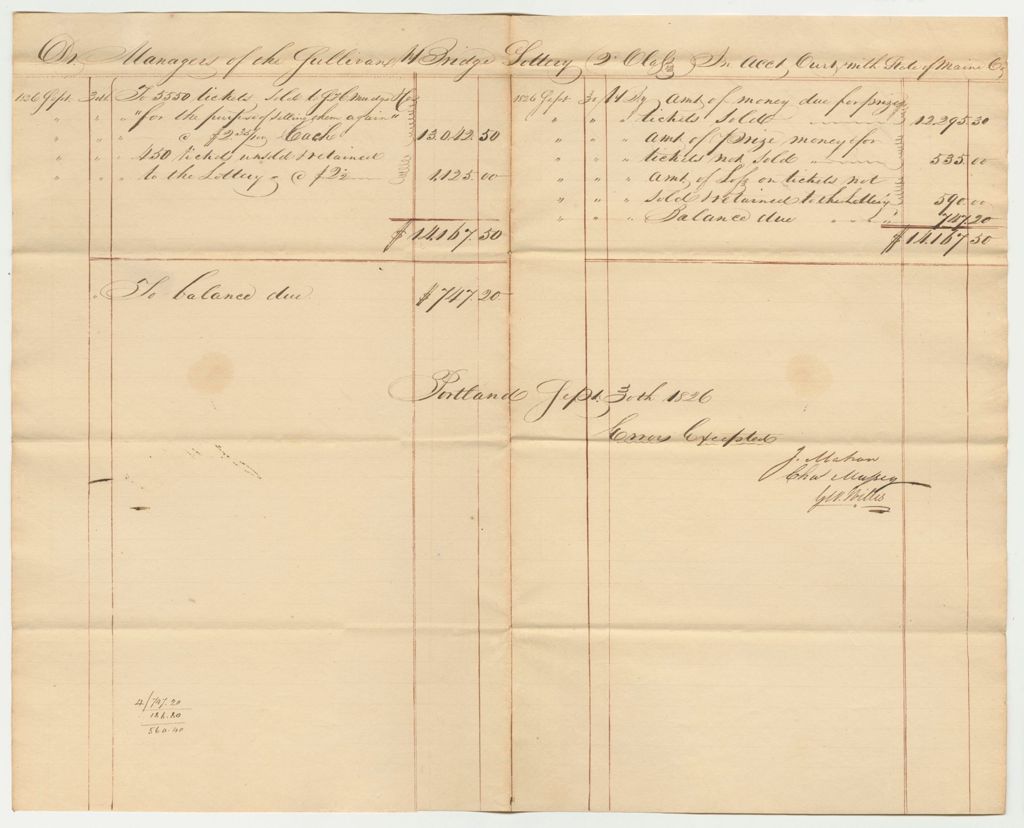 Dr Managers of the Sullivan Bridge Lottery 2d Class In Acct Curt with State of Maine Cr
1826 Sept 30th To 5550 tickets sold to
" " " "for the purpose of selling them again"
" " " @ $2 35/100 Each 13.042.50
" " " 450 tickets unsold & retained
" " " to the Lottery " @ $2½ 1.125.00
$14.167.50
1826 Sept 30 By Amt of money due for prizes
" " " tickets sold 12.295.30
" " " Amt of prize money for
" " " tickets not sold " 535.00
" " " Amt of Loss on tickets not
" " " sold & retained to the Lottery 590.00
" " " Balance due " " " 747.20
$14.167 50
" To balance due $747.20
Portland Sept. 30th 1826
Errors Excepted
J. Mahan
Chas Mussey
G.W. Willis
4/747.20
186.80
560.40